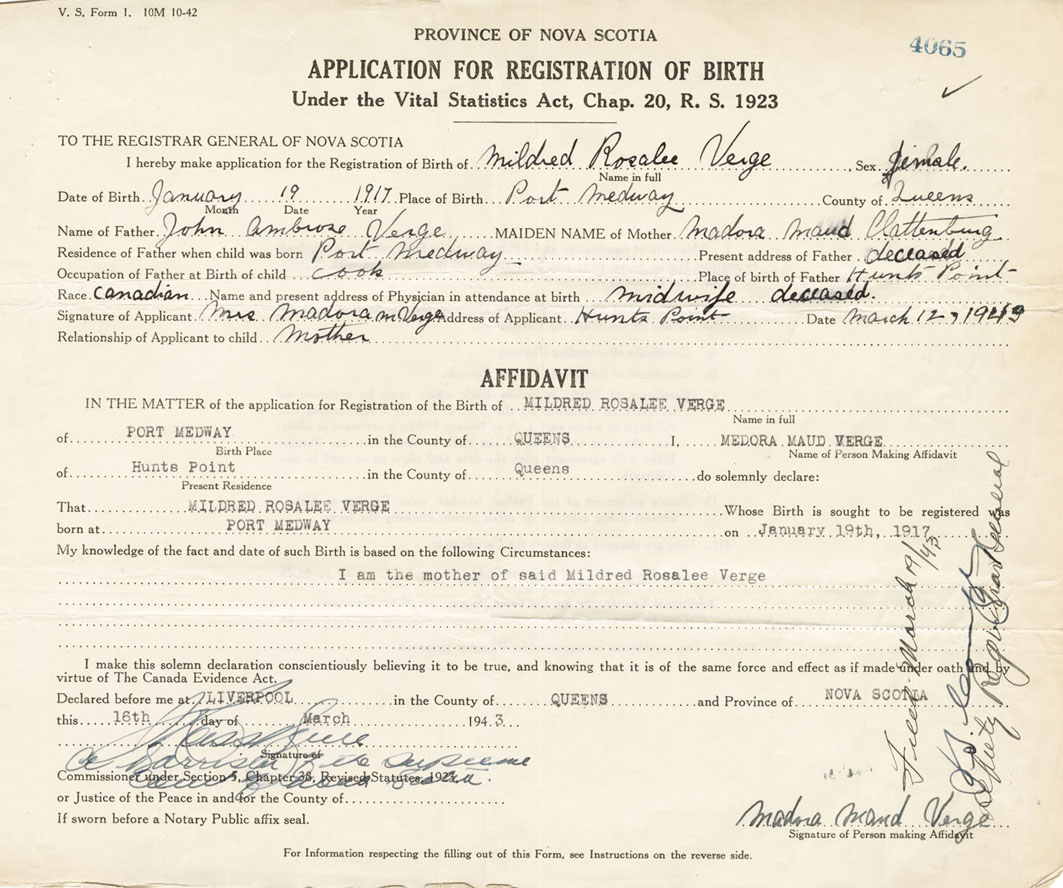 V. S. Form 1. 10M 10-42
PROVINCE OF NOVA SCOTIA
4065
APPLICATION FOR REGISTRATION OF BIRTH
Under the Vital Statistics Act, Chap. 20, R. S. 1923
TO THE REGISTRAR GENERAL OF NOVA SCOTIA
I hereby make application for the Registration of Birth of Mildred Rosalee Verge, Sex female.
Name in full
Date of Birth January 19 1917 Place of Birth Port Medway County of Queens
Month Date Year
Name of Father John Ambrose Verge MAIDEN NAME of Mother Madora Maud Clattenburg
Residence of Father when child was born Port Medway Present address of Father deceased
Occupation of Father at Birth of child cook Place of birth of Father Hunts Point
Race Canadian Name and present address of Physician in attendance at birth midwife deceased.
Signature of Applicant Mrs Madora M Verge Address of Applicant Hunts Point Date March 12, 1943
Relationship of Applicant to child Mother
AFFIDAVIT
IN THE MATTER of the application for Registration of the Birth of MILDRED ROSALEE VERGE
Name in full
of PORT MEDWAY in the County of QUEENS I, MEDORA MAUD VERGE
Birth Place Name of Person Making Affidavit
of Hunts Point in the County of Queens do solemnly declare:
Present Residence
That MILDRED ROSALEE VERGE Whose Birth is sought to be registered was
born at PORT MEDWAY on January 19th, 1917
My knowledge of the fact and date of such Birth is based on the following Circumstances:
I am the mother of said Mildred Rosalee Verge
I make this solemn declaration conscientiously believing it to be true, and knowing that it is of the same force and effect as if made under oath and by
virtue of The Canada Evidence Act.
Declared before me at LIVERPOOL in the County of QUEENS and Province of NOVA SCOTIA
this 18th day of March 1943
Signature of
A Barrister of the Supreme
Court
Commissioner under Section 5, Chapter 38, Revised Statutes, 1923
or Justice of the Peace in and for the County of
If sworn before a Notary Public affix seal.
Madora Maud Verge
Signature of Person making Affidavit
For Information respecting the filling out of this Form, see Instructions on the reverse side.
Filed March 19/43
Deputy Registrar General